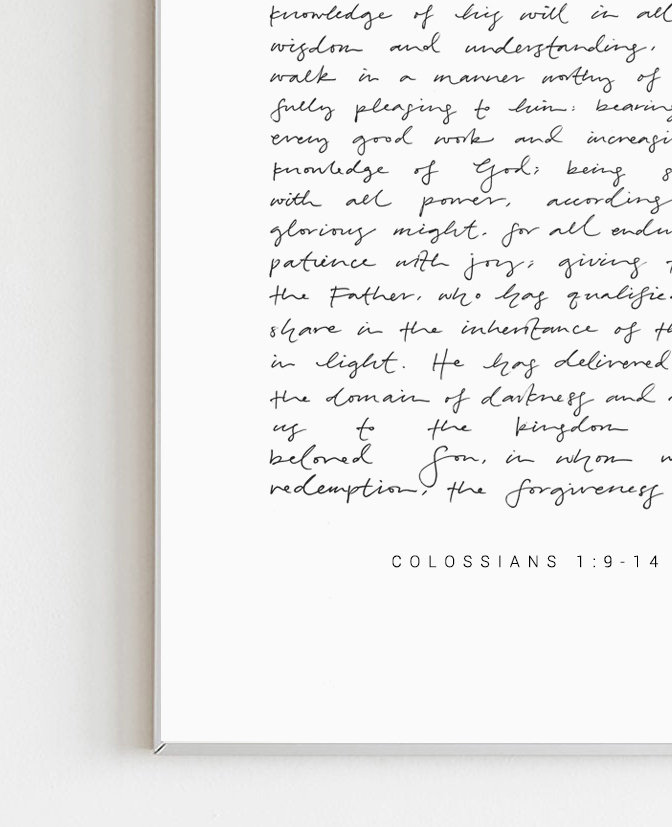 knowledge of his will in all
wisdom and understanding,
walk in a manner worthy of
fully pleasing to him: bearing
every good work and increasi
knowledge of God; being s
with all power, according
glorious might, for all endu
patience with joy; giving t
the Father, who has qualifie
share in the inheritance of th
in light. He has delivered
the domain of darkness and
us to the kingdom
beloved Son, in whom w
redemption, the forgiveness
COLOSSIANS 1:9-14